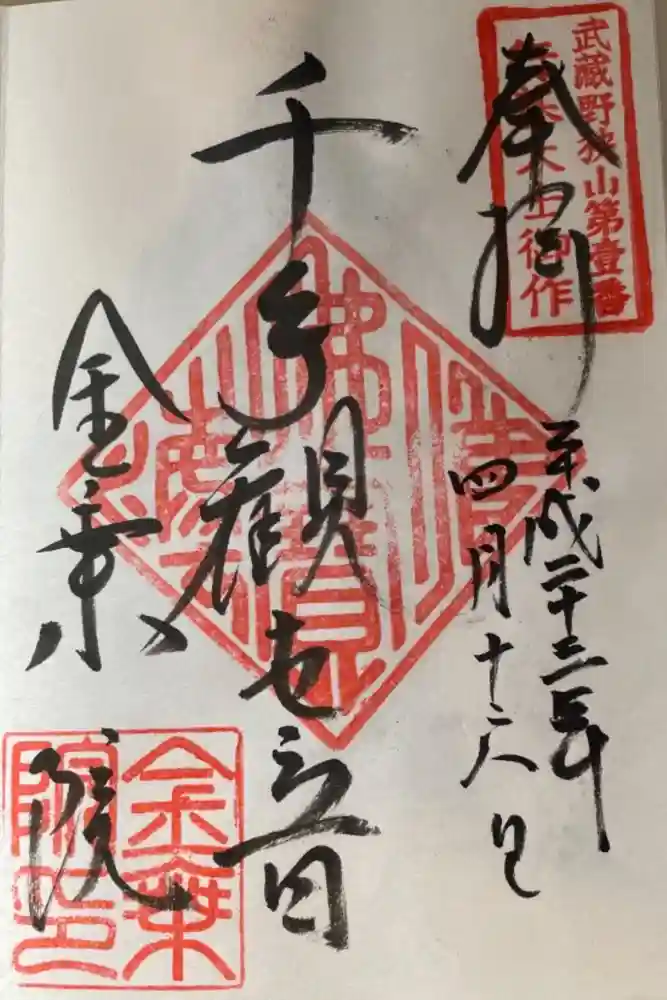 武蔵野狭山第壹番
大士御作
奉拝
平成二十三年
四月十六日
千手観世音
金乗院
金乗
院印